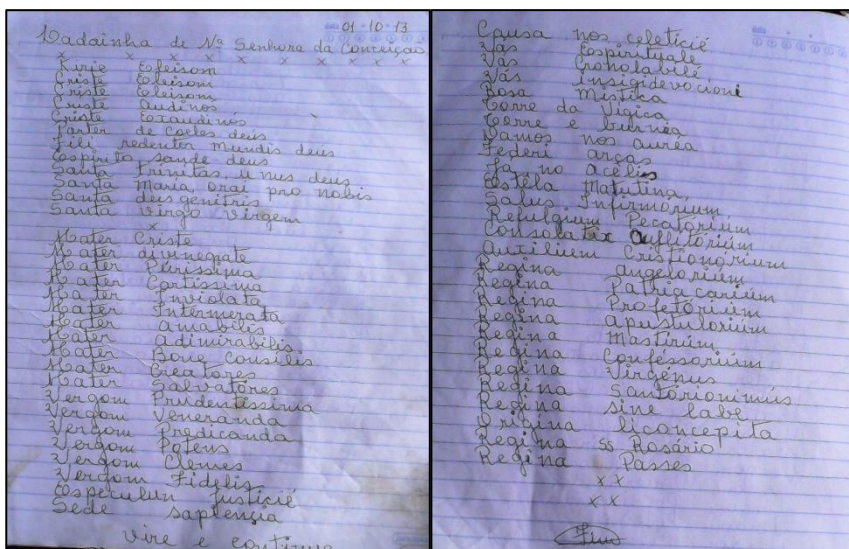 01-10-13
Ladainha de Nª Senhora da Conceição
x x x x x x x x x x
Kirie Eleisom
Criste Eleisom
Criste Eleisom
Criste Audinos
Criste Exaudinós
Parter de Coeles deus
Fili redentor mundis deus
Espirito sande deus
Santa Trinitas, u nus deus
Santa Maria, orai pro nobis
Santa deus genitris
Santa Virgo Virgem
x
Mater Criste
Mater divinegrate
Mater Purissima
Mater Cartissima
Mater Inviolata
Mater Intermerata
Mater amabilis
Mater adimirabilis
Mater Bone Consilis
Mater Creatores
Mater Salvatores
Vergom Prudentessima
Vergom Veneranda
Vergom Predicanda
Vergom Potens
Vergom Clemes
Vergom Fidelis
Especulun Justicié
Sede sapiensia
Vire e continue
Causa nos celeticié
Vás Espirituale
Vás Honolabile
Vás insigidevocioni
Rosa Mistika
Torre da Vigica
Torre e burnéa
Damos nos aurea
Federi arcas
Ja no acelis
Estela Matutina,
Salus Infirmórium
Refulgium Pecatórium
Consolatix Aufflitórium
Auxilium Cristionórium
Regina angelorium
Regina Patriacarium
Regina Profetórium
Regina apustulorium
Regina Mastirúm
Regina Confessorium
Regina Virgénus
Regina Santórionimús
Regina sine labe
Origina liconcepita
Regina ss Rosário
Regina Passes
x x
x x
Fim